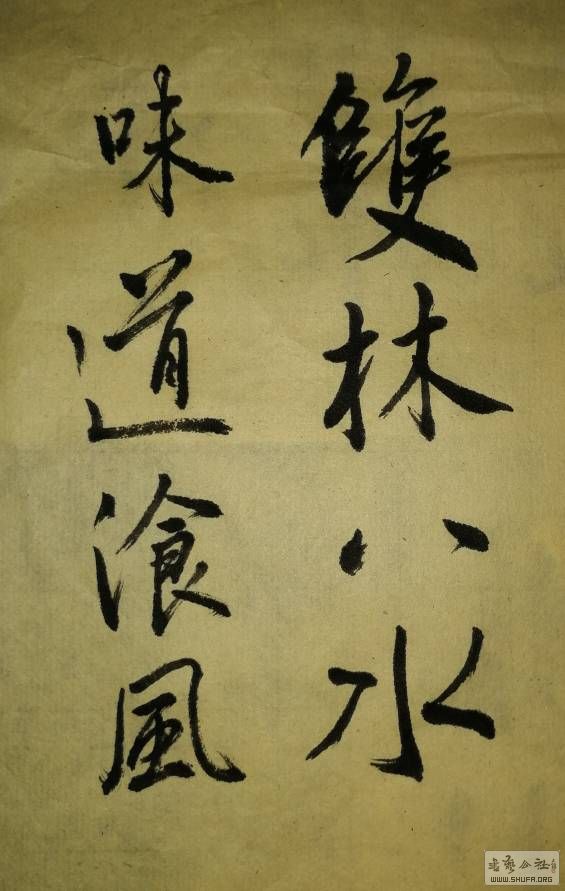 雙林八水
味道湌風
書藝公社
WWW.SHUFA.ORG